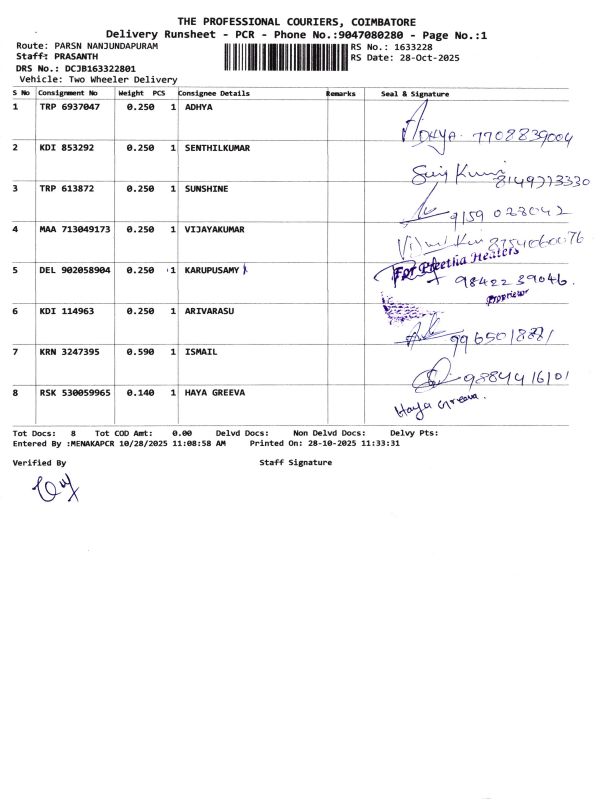 THE PROFESSIONAL COURIERS, COIMBATORE
Delivery Runsheet - PCR - Phone No.:9047080280 - Page No.:1
Route: PARSN NANJUNDAPURAM RS No.: 1633228
Staff: PRASANTH RS Date: 28-Oct-2025
DRS No.: DCJB163322801
Vehicle: Two Wheeler Delivery
S No Consignment No Weight PCS Consignee Details Remarks Seal & Signature
1 TRP 6937047 0.250 1 ADHYA
ADHYA. 7708839004
2 KDI 853292 0.250 1 SENTHILKUMAR
8149773330
3 TRP 613872 0.250 1 SUNSHINE
9159 028042
4 MAA 713049173 0.250 1 VIJAYAKUMAR
8754060076
For Preetha Heaters
5 DEL 902058904 0.250 1 KARUPUSAMY
98422 39046.
Proprietor
6 KDI 114963 0.250 1 ARIVARASU
7 KRN 3247395 0.590 1 ISMAIL
9884416101
8 RSK 530059965 0.140 1 HAYA GREEVA
Haya Greeva.
Tot Docs: 8 Tot COD Amt: 0.00 Delvd Docs: Non Delvd Docs: Delvy Pts:
Entered By :MENAKAPCR 10/28/2025 11:08:58 AM Printed On: 28-10-2025 11:33:31
Verified By Staff Signature